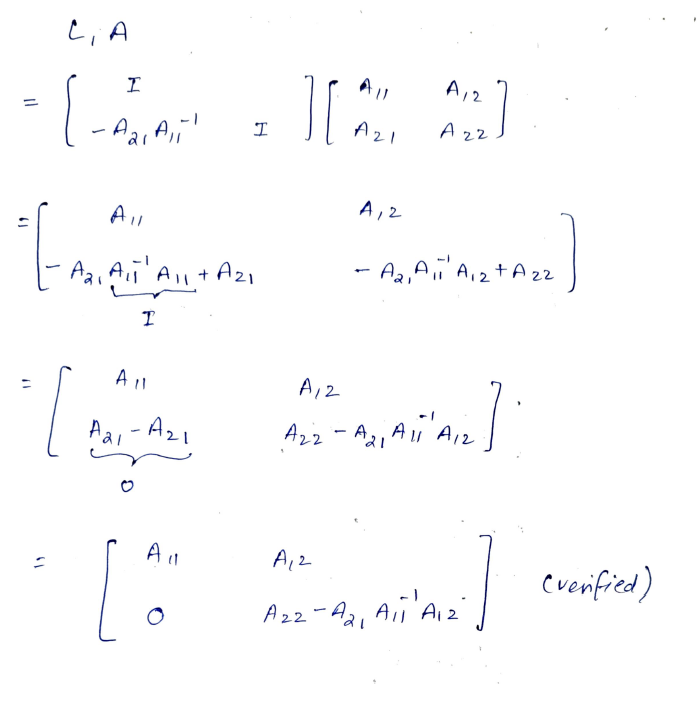 L₁ A
= [ I
-A₂₁ A₁₁⁻¹ I ] [ A₁₁ A₁₂
A₂₁ A₂₂ ]
= [ A₁₁ A₁₂
- A₂₁ A₁₁⁻¹ A₁₁ + A₂₁ - A₂₁ A₁₁⁻¹ A₁₂ + A₂₂ ]
I
= [ A₁₁ A₁₂
A₂₁ - A₂₁ A₂₂ - A₂₁ A₁₁⁻¹ A₁₂ ]
0
= [ A₁₁ A₁₂
0 A₂₂ - A₂₁ A₁₁⁻¹ A₁₂ ] (verified)